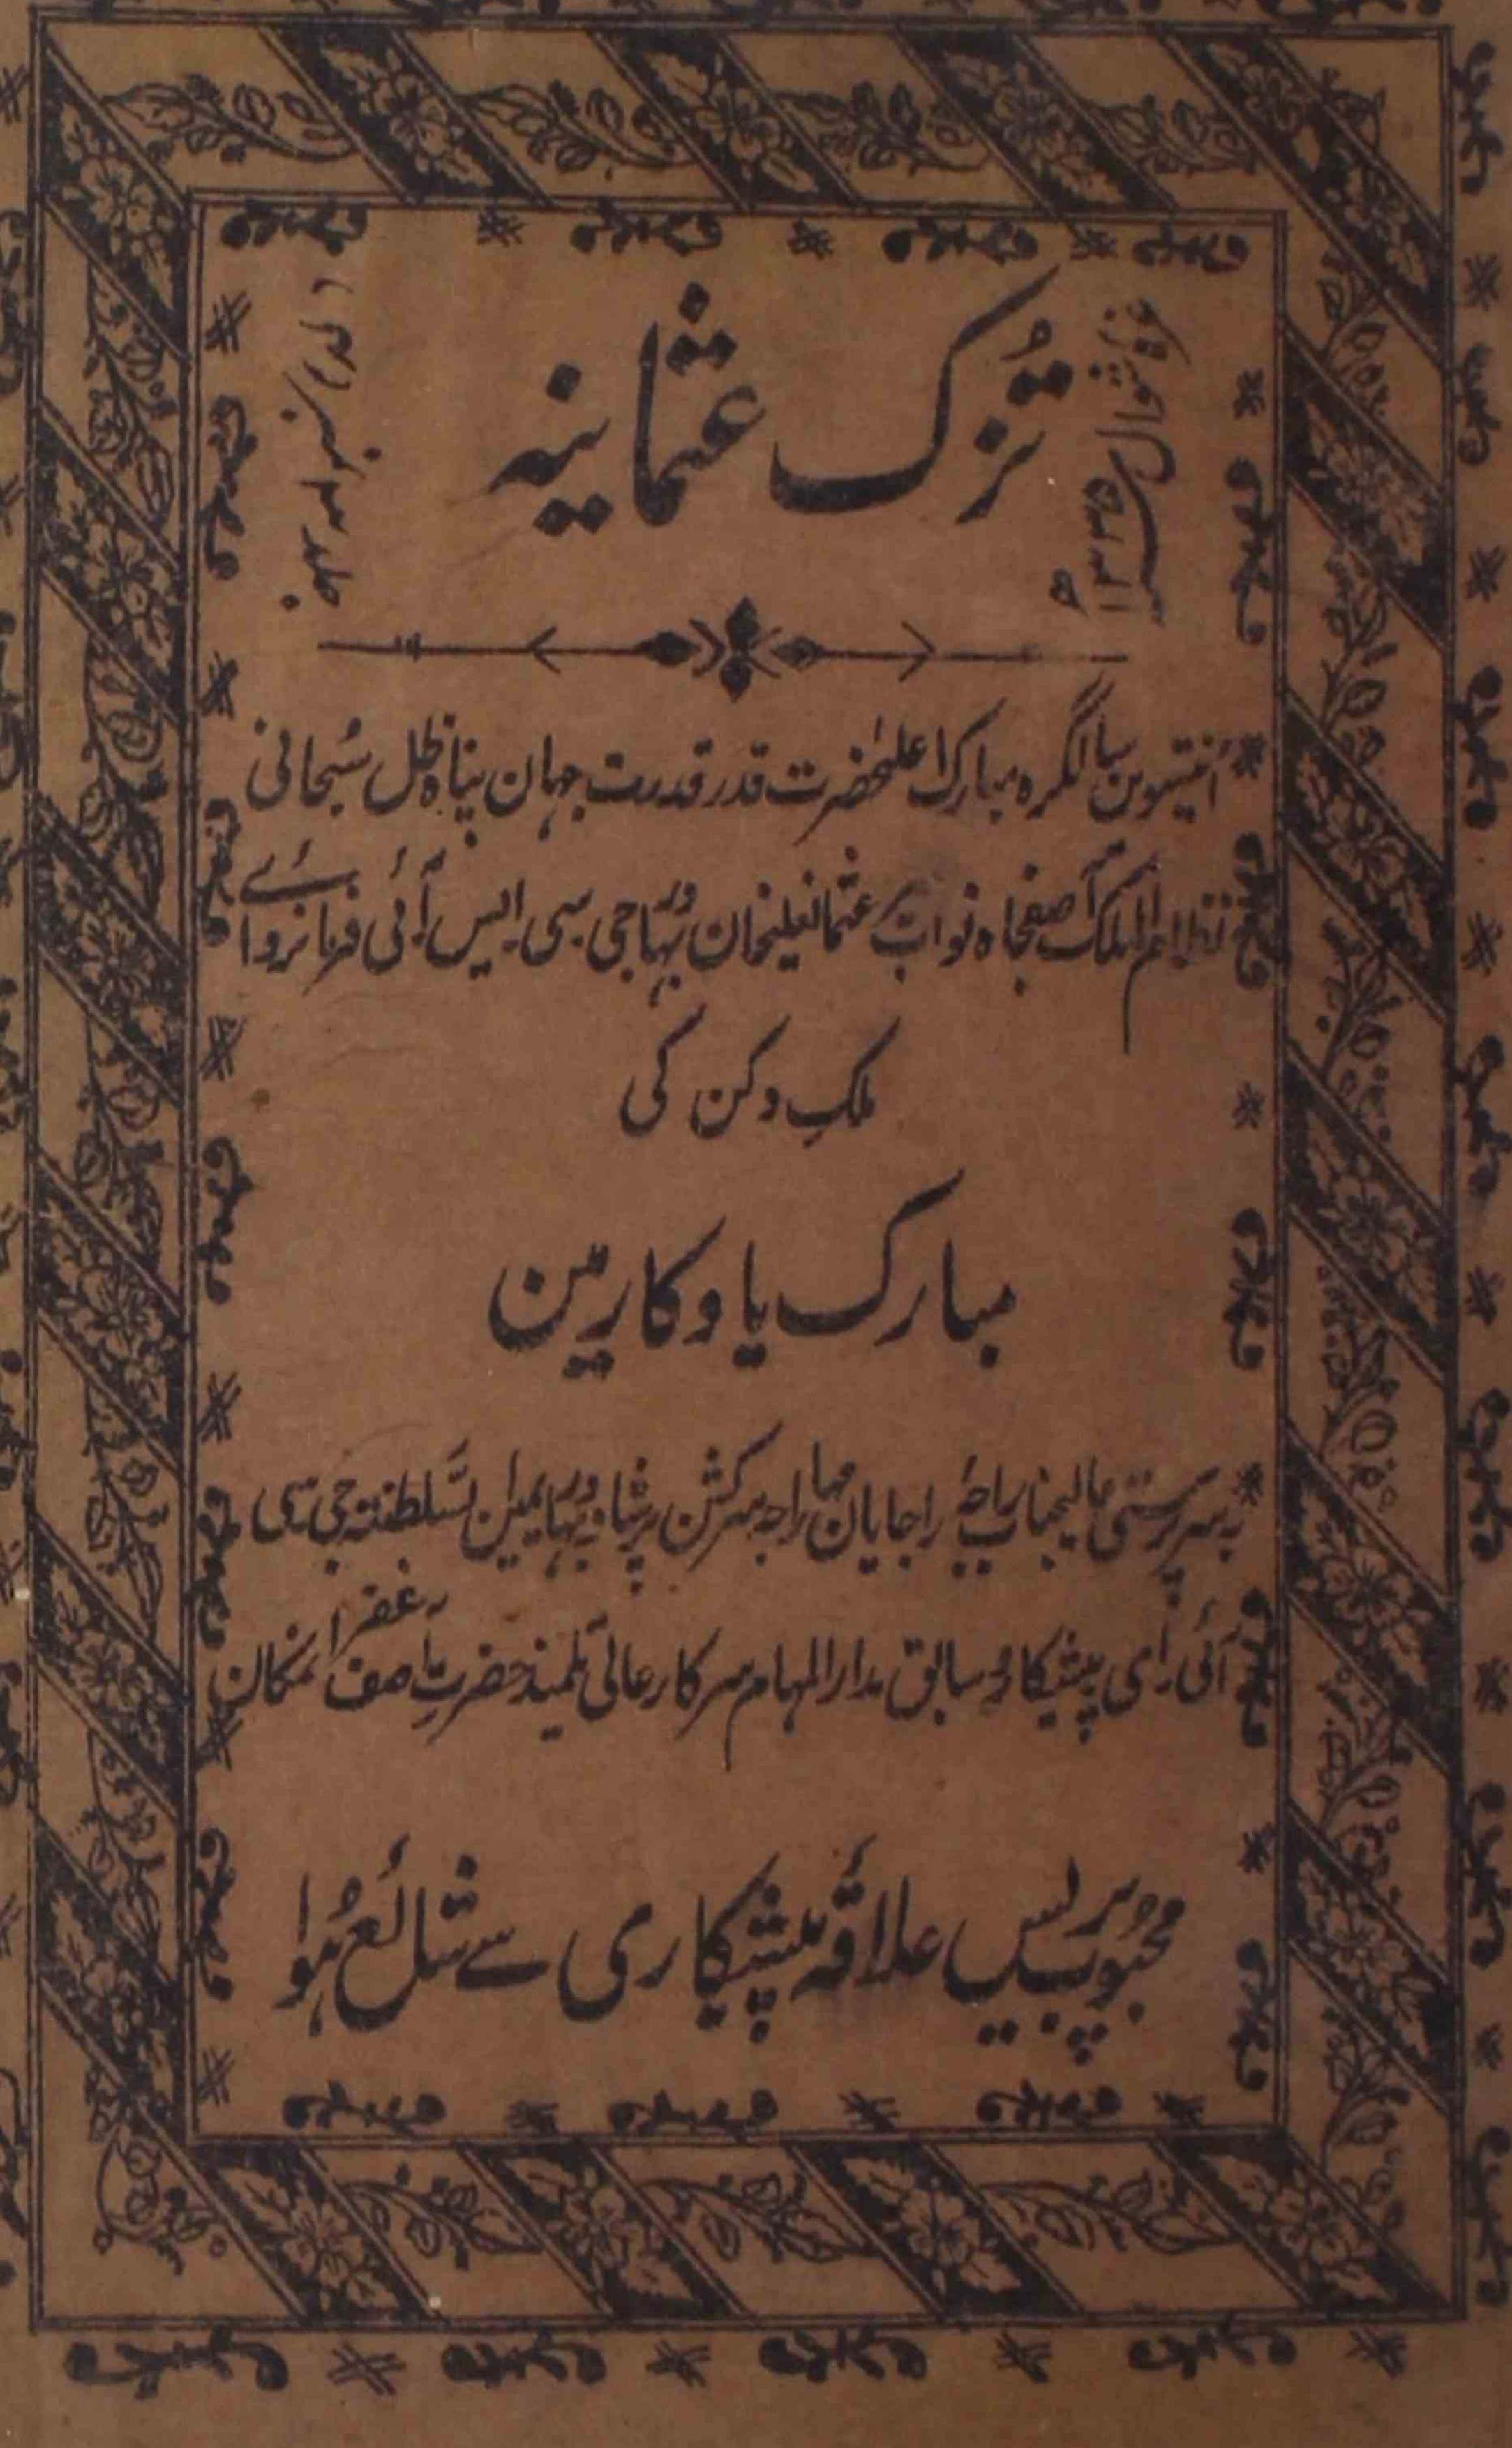 غرہ شوال ۱۳۳۵ھ
تُزک عثمانیہ
جلد
نمبر
اُنتیسوین سالگرہ مبارک اعلیٰحضرت قدر قدرت جہان پناہ ظل سُبحانی
نظام الملک آصفجاہ نواب میر عثمانعلیخان بہادر جی سی ایس آئی فرمانروائے
ملکِ دکن کی
مبارک یادکارمین
بہ سرپرستی عالیجناب راجۂ راجایان مہاراجہ سرکشن پرشاد بہادر یمین السّلطنتہ جی سی
آئی ای پیشکار و سابق مدارالمہام سرکارعالی تلمیذ حضرتِ آصف غفران مکان
محبوب پریس علاقۂ پیشکاری سے شائع ہُوا